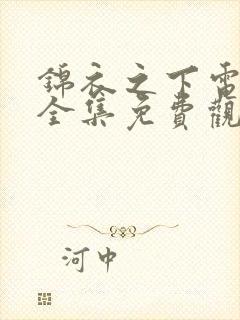 錦衣之下電
全集免費觀
河中